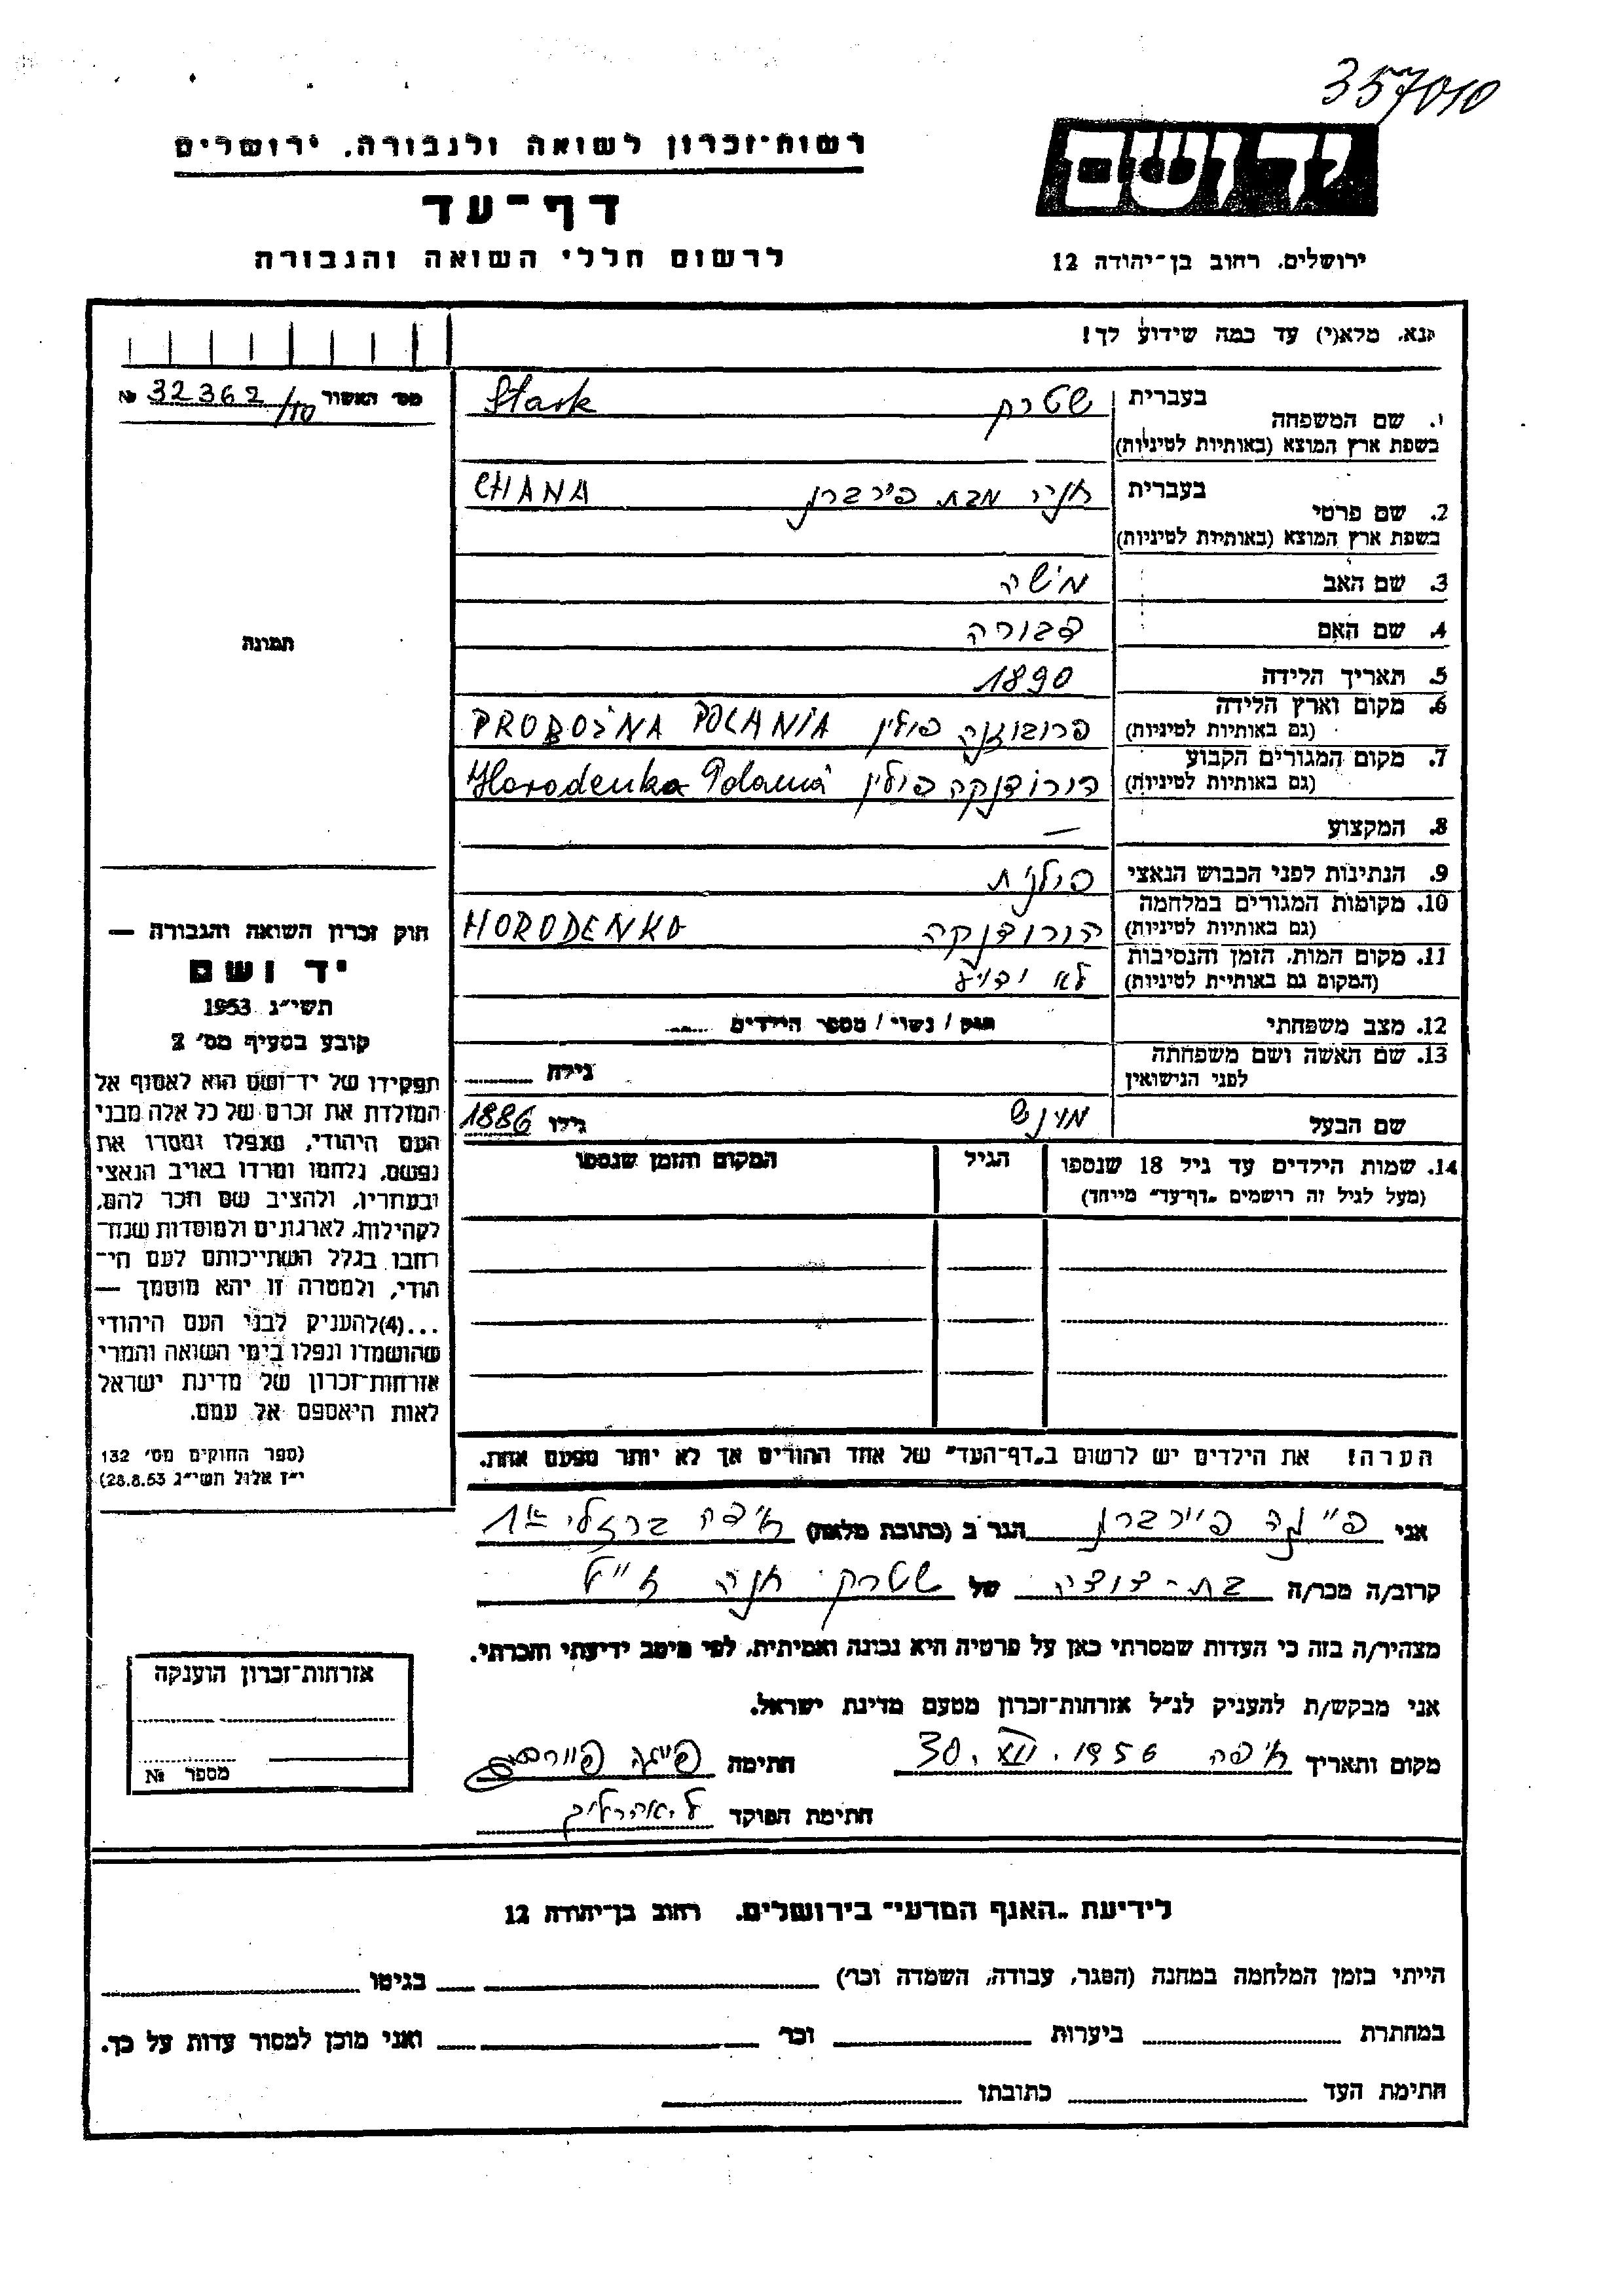 357010
רשות־זכרון לשואה ולגבורה, ירושלים
דף־עד
לרשום חללי השואה והגבורה
יד ושם
ירושלים, רחוב בן־יהודה 12
נא, מלא(י) עד כמה שידוע לך!
מס׳ האשור 32362/10 №
1. שם המשפחה
בעברית
שטרק Stark
בשפת ארץ המוצא (באותיות לטיניות)
2. שם פרטי
בעברית
חנה מבת פירברן CHANA
בשפת ארץ המוצא (באותיות לטיניות)
3. שם האב משה
4. שם האם דבורה
5. תאריך הלידה 1890
6. מקום וארץ הלידה
(גם באותיות לטיניות)
פרובוזנה פולין PROBOŻNA POLANIA
7. מקום המגורים הקבוע
(גם באותיות לטיניות)
הורודנקה פולין Horodenka
8. המקצוע —
9. הנתינות לפני הכבוש הנאצי פולנית
10. מקומות המגורים במלחמה
(גם באותיות לטיניות)
הורודנקה HORODENKA
11. מקום המות, הזמן והנסיבות
(המקום גם באותיות לטיניות)
לא ידוע
12. מצב משפחתי רווק / נשוי / מספר הילדים
13. שם האשה ושם משפחתה
לפני הנישואין
גילה
שם הבעל גילו 1886
14. שמות הילדים עד גיל 18 שנספו
(מעל לגיל זה רושמים „דף־עד״ מיוחד)
הגיל
המקום והזמן שנספו
הערה! את הילדים יש לרשום ב„דף־העד״ של אחד ההורים אך לא יותר מפעם אחת.
תמונה
חוק זכרון השואה והגבורה —
יד ושם
תשי״ג 1953
קובע בסעיף מס׳ 2
תפקידו של יד־ושם הוא לאסוף אל
המולדת את זכרם של כל אלה מבני
העם היהודי, שנפלו ומסרו את
נפשם, נלחמו ומרדו באויב הנאצי
ובעוזריו, ולהציב שם וזכר להם,
לקהילות, לארגונים ולמוסדות שנח־
רבו בגלל השתייכותם לעם הי־
הודי, ולמטרה זו יהא מוסמך —
...(4)להעניק לבני העם היהודי
שהושמדו ונפלו בימי השואה והמרי
אזרחות־זכרון של מדינת ישראל
לאות היאספם אל עמם.
(ספר החוקים מס׳ 132
י״ז אלול תשי״ג 28.8.53)
אני הגר ב (כתובת מלאה) חיפה ברזלי
קרוב/ה מכר/ה בת-דודה של שטרק חנה ז״ל
מצהיר/ה בזה כי העדות שמסרתי כאן על פרטיה היא נכונה ואמיתית, לפי מיטב ידיעתי והכרתי.
אני מבקש/ת להעניק לנ״ל אזרחות־זכרון מטעם מדינת ישראל.
מקום ותאריך חיפה 30. XII. 1956 חתימה
חתימת הפוקד
אזרחות־זכרון הוענקה
מספר №
לידיעת „האגף המדעי״ בירושלים, רחוב בן־יהודה 12
הייתי בזמן המלחמה במחנה (הסגר, עבודה, השמדה וכר׳) בגיטו
במחתרת ביערות וכר׳ ואני מוכן למסור עדות על כך.
חתימת העד כתובתו